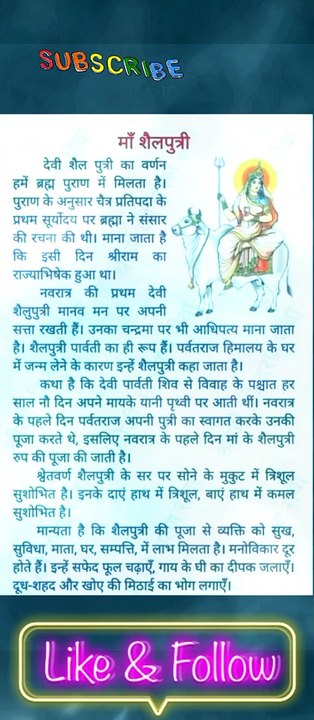 SUBSCRIBE
माँ शैलपुत्री
देवी शैल पुत्री का वर्णन
हमें ब्रह्म पुराण में मिलता है।
पुराण के अनुसार चैत्र प्रतिपदा के
प्रथम सूर्योदय पर ब्रह्मा ने संसार
की रचना की थी। माना जाता है
कि इसी दिन श्रीराम का
राज्याभिषेक हुआ था।
नवरात्र की प्रथम देवी
शैलुपुत्री मानव मन पर अपनी
सत्ता रखती हैं। उनका चन्द्रमा पर भी आधिपत्य माना जाता
है। शैलपुत्री पार्वती का ही रूप हैं। पर्वतराज हिमालय के घर
में जन्म लेने के कारण इन्हें शैलपुत्री कहा जाता है।
कथा है कि देवी पार्वती शिव से विवाह के पश्चात हर
साल नौ दिन अपने मायके यानी पृथ्वी पर आती थीं। नवरात्र
के पहले दिन पर्वतराज अपनी पुत्री का स्वागत करके उनकी
पूजा करते थे, इसलिए नवरात्र के पहले दिन मां के शैलपुत्री
रुप की पूजा की जाती है।
श्वेतवर्ण शैलपुत्री के सर पर सोने के मुकुट में त्रिशूल
सुशोभित है। इनके दाएं हाथ में त्रिशूल, बाएं हाथ में कमल
सुशोभित है।
मान्यता है कि शैलपुत्री की पूजा से व्यक्ति को सुख,
सुविधा, माता, घर, सम्पत्ति, में लाभ मिलता है। मनोविकार दूर
होते हैं। इन्हें सफेद फूल चढ़ाएँ, गाय के घी का दीपक जलाएँ।
दूध-शहद और खोए की मिठाई का भोग लगाएँ।
Like & Follow